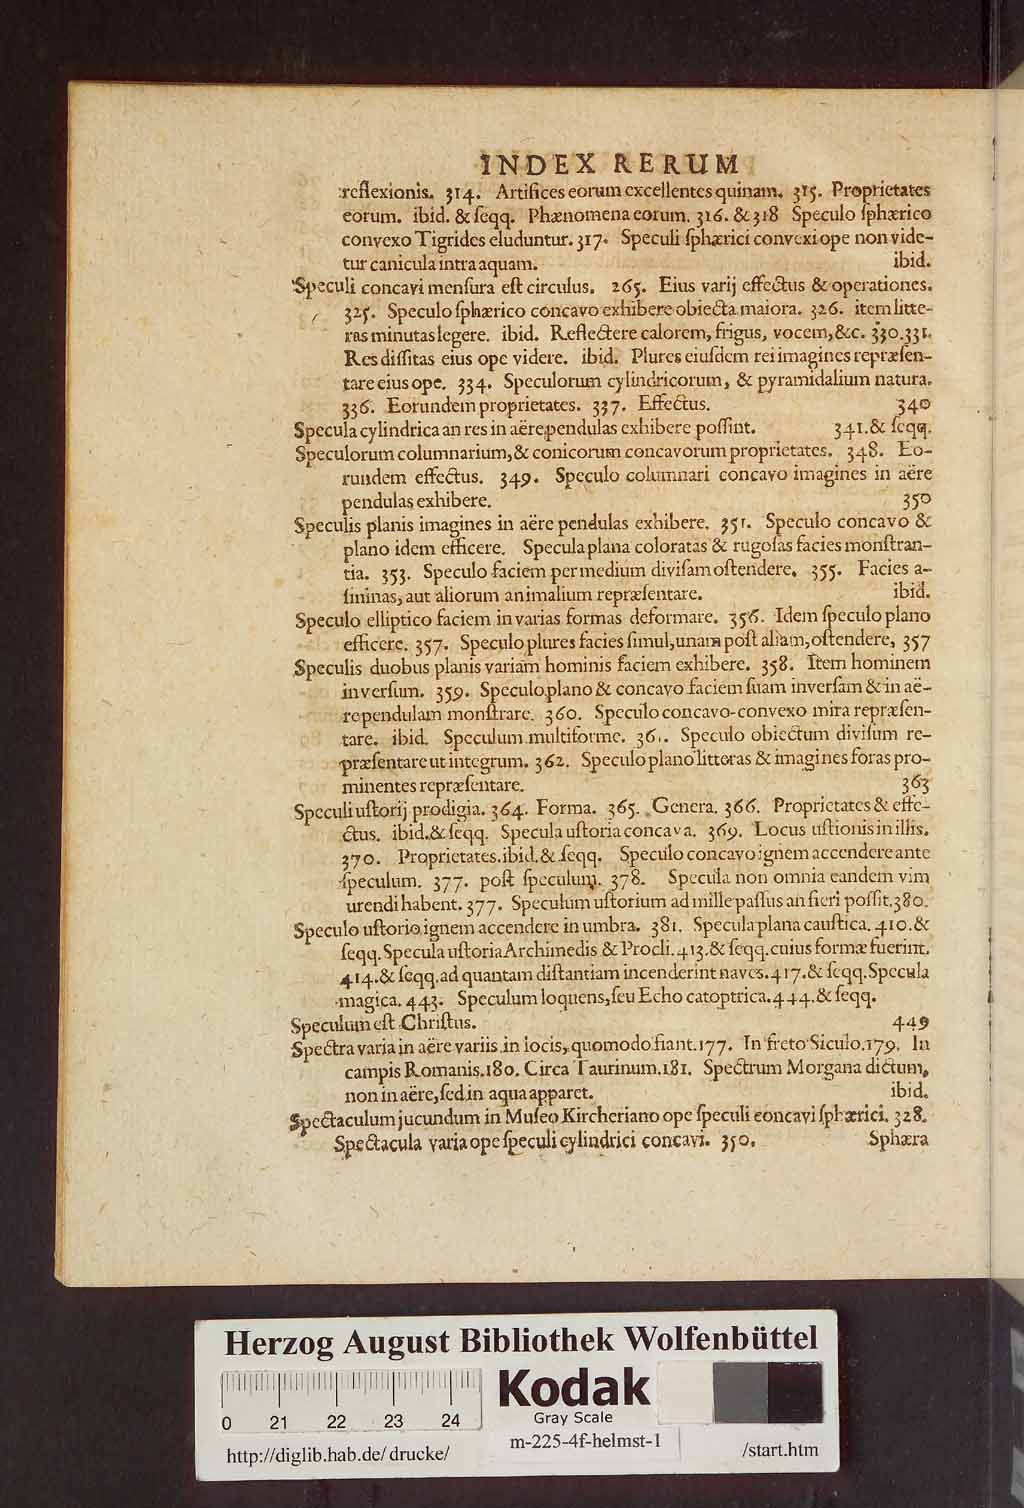 INDEX RERUM
reflexionis. 314. Artifices eorum excellentes quinam. 315. Proprietates
eorum. ibid. & ſeqq. Phænomena eorum. 316. & 318 Speculo ſphærico
convexo Tigrides eluduntur. 317. Speculi ſphærici convexi ope non vide-
tur canicula intra aquam. ibid.
Speculi concavi menſura eſt circulus. 265. Eius varij effectus & operationes.
325. Speculo ſphærico concavo exhibere obiecta maiora. 326. item litte-
ras minutas legere. ibid. Reflectere calorem, frigus, vocem, &c. 330. 331.
Res diſſitas eius ope videre. ibid. Plures eiuſdem rei imagines repræſen-
tare eius ope. 334. Speculorum cylindricorum, & pyramidalium natura.
336. Eorundem proprietates. 337. Effectus. 340
Specula cylindrica an res in aëre pendulas exhibere poſſint. 341. & ſeqq.
Speculorum columnarium, & conicorum concavorum proprietates. 348. Eo-
rundem effectus. 349. Speculo columnari concavo imagines in aëre
pendulas exhibere. 350
Speculis planis imagines in aëre pendulas exhibere. 351. Speculo concavo &
plano idem efficere. Specula plana coloratas & rugoſas facies monſtran-
tia. 353. Speculo faciem per medium diviſam oſtendere. 355. Facies a-
ſininas, aut aliorum animalium repræſentare. ibid.
Speculo elliptico faciem in varias formas deformare. 356. Idem ſpeculo plano
efficere. 357. Speculo plures facies ſimul, unam poſt aliam, oſtendere, 357
Speculis duobus planis variam hominis faciem exhibere. 358. Item hominem
inverſum. 359. Speculo plano & concavo faciem ſuam inverſam & in aë-
re pendulam monſtrare. 360. Speculo concavo-convexo mira repræſen-
tare. ibid. Speculum multiforme. 361. Speculo obiectum diviſum re-
præſentare ut integrum. 362. Speculo plano litteras & imagines foras pro-
minentes repræſentare. 363
Speculi uſtorij prodigia. 364. Forma. 365. Genera. 366. Proprietates & effe-
ctus. ibid. & ſeqq. Specula uſtoria concava. 369. Locus uſtionis in illis.
370. Proprietates. ibid. & ſeqq. Speculo concavo ignem accendere ante
ſpeculum. 377. poſt ſpeculum. 378. Specula non omnia eandem vim
urendi habent. 377. Speculum uſtorium ad mille paſſus an fieri poſſit. 380.
Speculo uſtorio ignem accendere in umbra. 381. Specula plana cauſtica. 410. &
ſeqq. Specula uſtoria Archimedis & Procli. 413. & ſeqq. cuius formæ fuerint.
414. & ſeqq. ad quantam diſtantiam incenderint naves. 417. & ſeqq. Specula
magica. 443. Speculum loquens, ſeu Echo catoptrica. 444. & ſeqq.
Speculum eſt Chriſtus. 449
Spectra varia in aëre variis in locis, quomodo fiant. 177. In freto Siculo. 179. In
campis Romanis. 180. Circa Taurinum. 181. Spectrum Morgana dictum,
non in aëre, ſed in aqua apparet. ibid.
Spectaculum jucundum in Muſeo Kircheriano ope ſpeculi concavi ſphærici. 328.
Spectacula varia ope ſpeculi cylindrici concavi. 350. Sphæra
Herzog August Bibliothek Wolfenbüttel
0 21 22 23 24
Kodak
Gray Scale
http://diglib.hab.de/drucke/ m-225-4f-helmst-1 /start.htm